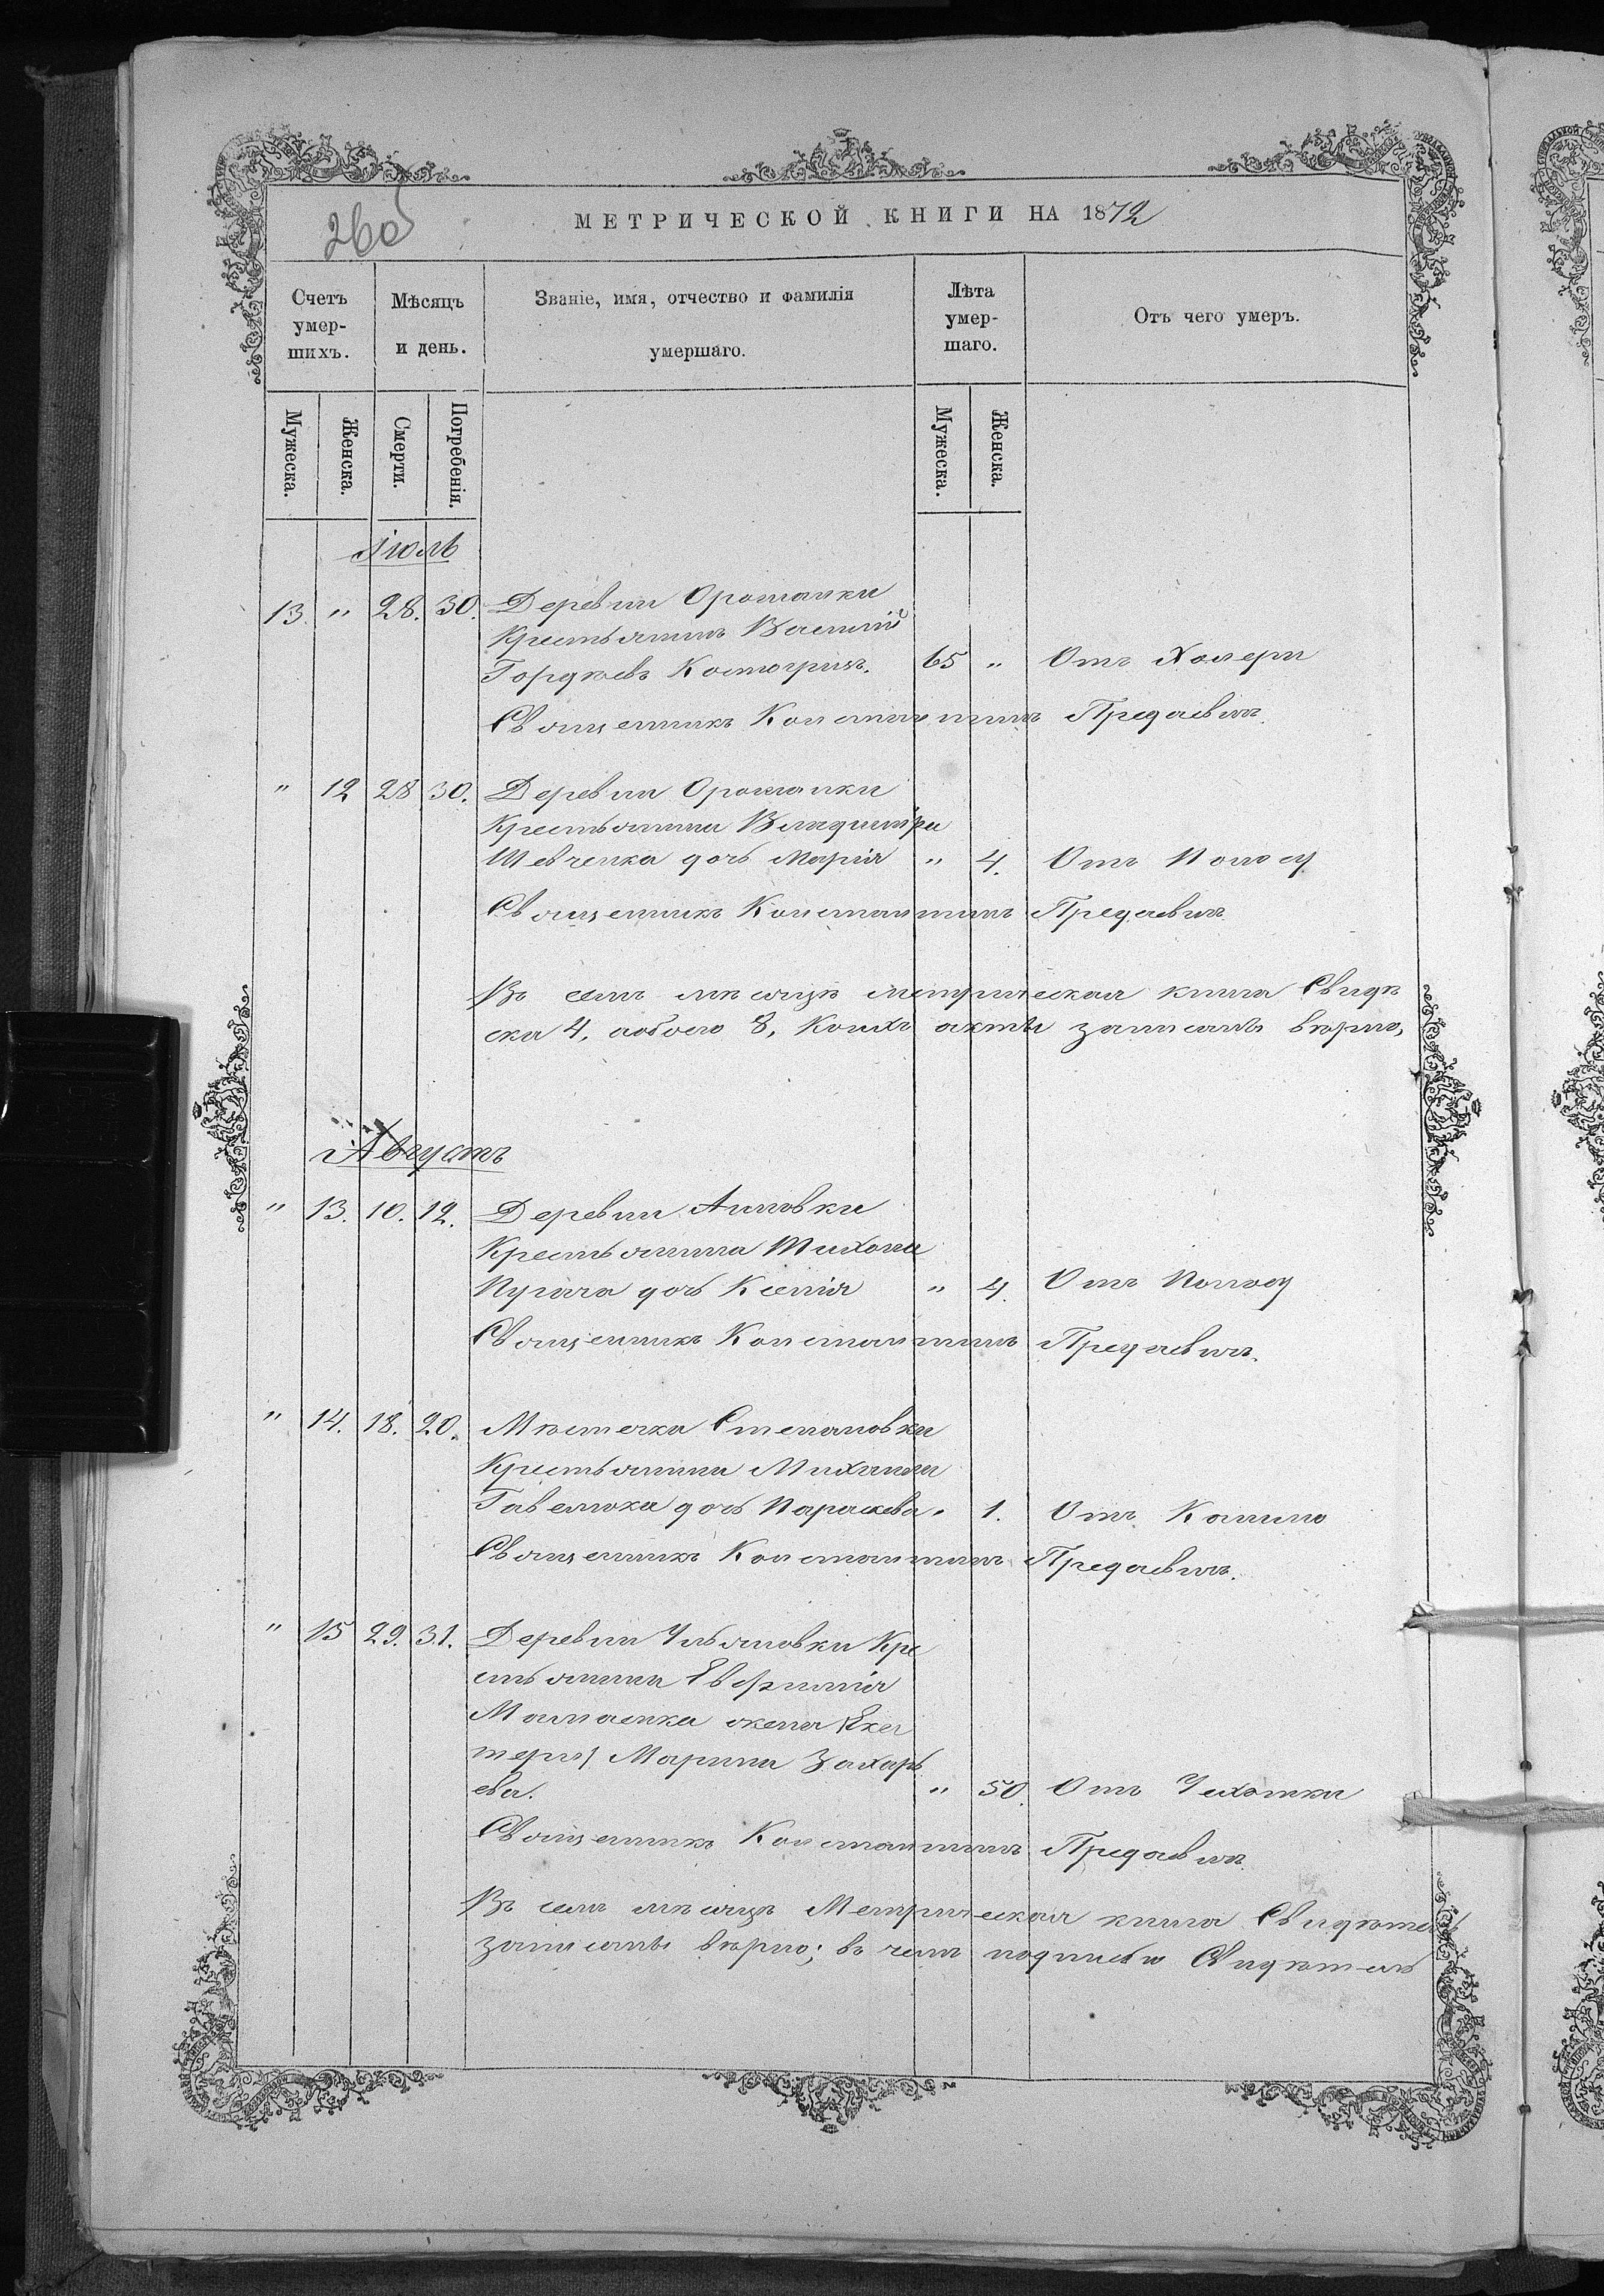 260
МЕТРИЧЕСКОЙ КНИГИ НА 1872
Счетъ умер-шихъ.
Мѣсяцъ и день.
Званіе, имя, отчество и фамилія умершаго.
Лѣта умер-шаго.
Отъ чего умеръ.
Мужеска.
Женска.
Смерти.
Погребенія.
Мужеска.
Женска.
Іюль
13. " 28. 30. Деревни
Крестьянинъ Василій
Гордѣевъ Костогризъ. 65 " Отъ Холери
Священникъ Константинъ
" 12 28 30. Деревни
Крестьянина Владиміра
Шевченка дочь Марія " 4. Отъ Поносу
Священникъ Константинъ
Въ семъ мѣсяцѣ метрическая книга
ска 4, обоего 8, коихъ акты записаны вѣрно,
Августъ
" 13. 10. 12. Деревни
Крестьянина Тихона
Пугача дочь Ксенія " 4. Отъ Поносу
Священникъ Константинъ
" 14. 18. 20. Мѣстечка Степановки
Крестьянина Михаила
дочь Параскева " 1. Отъ
Священникъ Константинъ
" 15 29. 31. Деревни Ульяновки Кре
стьянина Евфимія
жена
Марина Захарь
ева. " 50. Отъ Чахотки
Священникъ Константинъ
Въ семъ мѣсяцѣ Метрическая книга
записаны вѣрно; въ чемъ подписью Свидѣтель